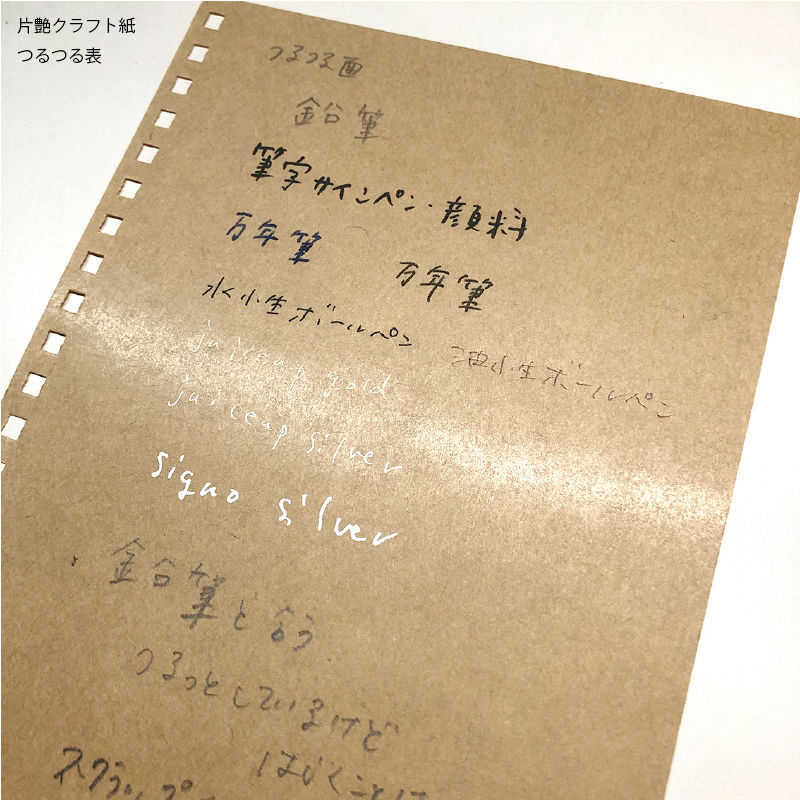 片艶クラフト紙
つるつる表
つるつる面
鉛筆
筆字サインペン・顔料
万年筆 万年筆
水性ボールペン 油性ボールペン
juiceup gold
juiceup silver
signo silver
鉛筆と合う
つるっとしているけど
はじくことは
スクラップ